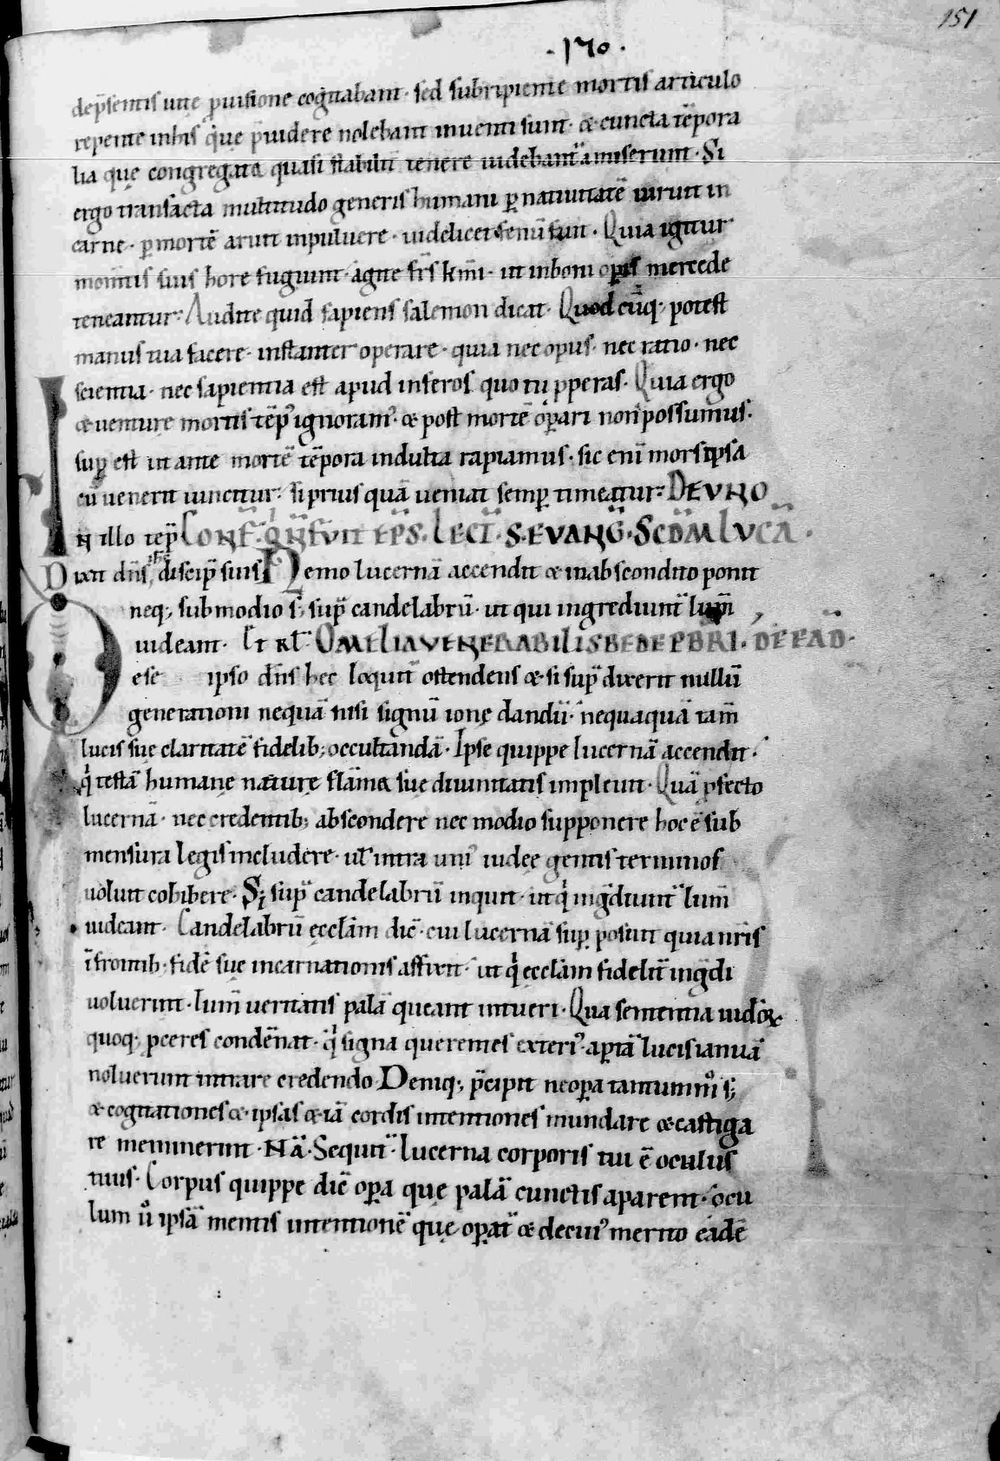 151
·170·
dep̄sentis uite p̱uisione cogitabant· sed subripiente mortis articulo
repente inhis q̇ue p̄uidere nolebant inuenti sunt· & cuncta tēpora
lia que congregata quasi stabiliter tenere uidebant̄ amiserunt· Si
ergo transacta multitudo generis humani p̱ natiuitatē uiruit in
carne· p̱ mortē aruit inpuluere· uidelicet fenū fuit· Quia igitur
mom̄tis suis hore fugiunt· agite fr̄s km̄i· ut inboni op̱is mercede
teneantur· Audite quid sapiens salemon dicat· Quodcūq; potest
manus tua facere· instanter operare· quia nec opus· nec ratio· nec
scientia· nec sapientia est apud inferos quo tu p̱peras· Quia ergo
& uenture mortis tēp' ignoram'· & post mortē op̱ari non possumus·
sup̱ est ut ante mortē tēpora indulta rapiamus· sic enī mors ipsa
cū uenerit uincetur· si prius quā ueniat semp̱ timeatur· DE UNO
IN illo tēp̱ CONF· QN̄ FUIT EP̄S· LECT̄· S· EUANḠ· SCD̄M LUCĀ·
Dixit dn̄s ih̄c discip̱ suis Nemo lucernā accendit & inabscondito ponit
neq; submodio s; sup̱ candelabrū· ut qui ingrediunt̄ lum̄
uideant· Et rł OMELIA VENERABILIS BEDE PBRI· DE EAD̄·
De se ipso dn̄s hec loquit̄ ostendens & si sup̱ dixerit nullū
generationi nequā nisi signū ione dandū· nequaquā tam̄
lucis sue claritatē fidelib; occultandā· Ipse quippe lucernā accendit·
q̇ testā humane nature flāma sue diuinitatis impleuit· Quā p̱fecto
lucernā· nec credentib; abscondere nec modio supponere hoc ē sub
mensura legis includere· uł intra uni' iudee gentis terminos
uoluit cohibere· S; sup̱ candelabrū inquit· ut q̇ ingrediunt̄ lum̄
uideant· Candelabrū eccłam dic̄· cui lucernā sup̱ posuit quia nr̄is
ī frontib; fidē sue incarnationis affixit· ut q̇ eccłam fidelit̄ ingredi
uoluerint· lum̄ ueritatis palā queant intueri· Qua sententia iudeor̨
quoq; p̱ceres condēnat· q̇ signa querentes exteri' ap̱tā lucis ianuā
noluerunt intrare credendo Deniq; p̄cipit ne op̱a tantummº s;
& cogitationes & ipsas & iā cordis intentiones mundare & castiga
re meminerint· NĀ· Sequit̄· lucerna corporis tui ē oculus
tuus· Corpus quippe dic̄ op̱a que palā cunctis aparent· ocu
lum ů ipsā mentis intentionē que op̱at̄ & decui' merito eadē